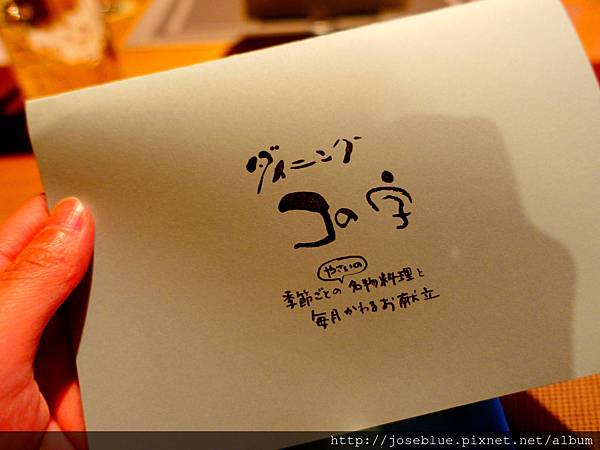 ダイニング
コの字
やさいの
季節ごとの名物料理と
毎月かわるお献立
http://joseblue.pixnet.net/album